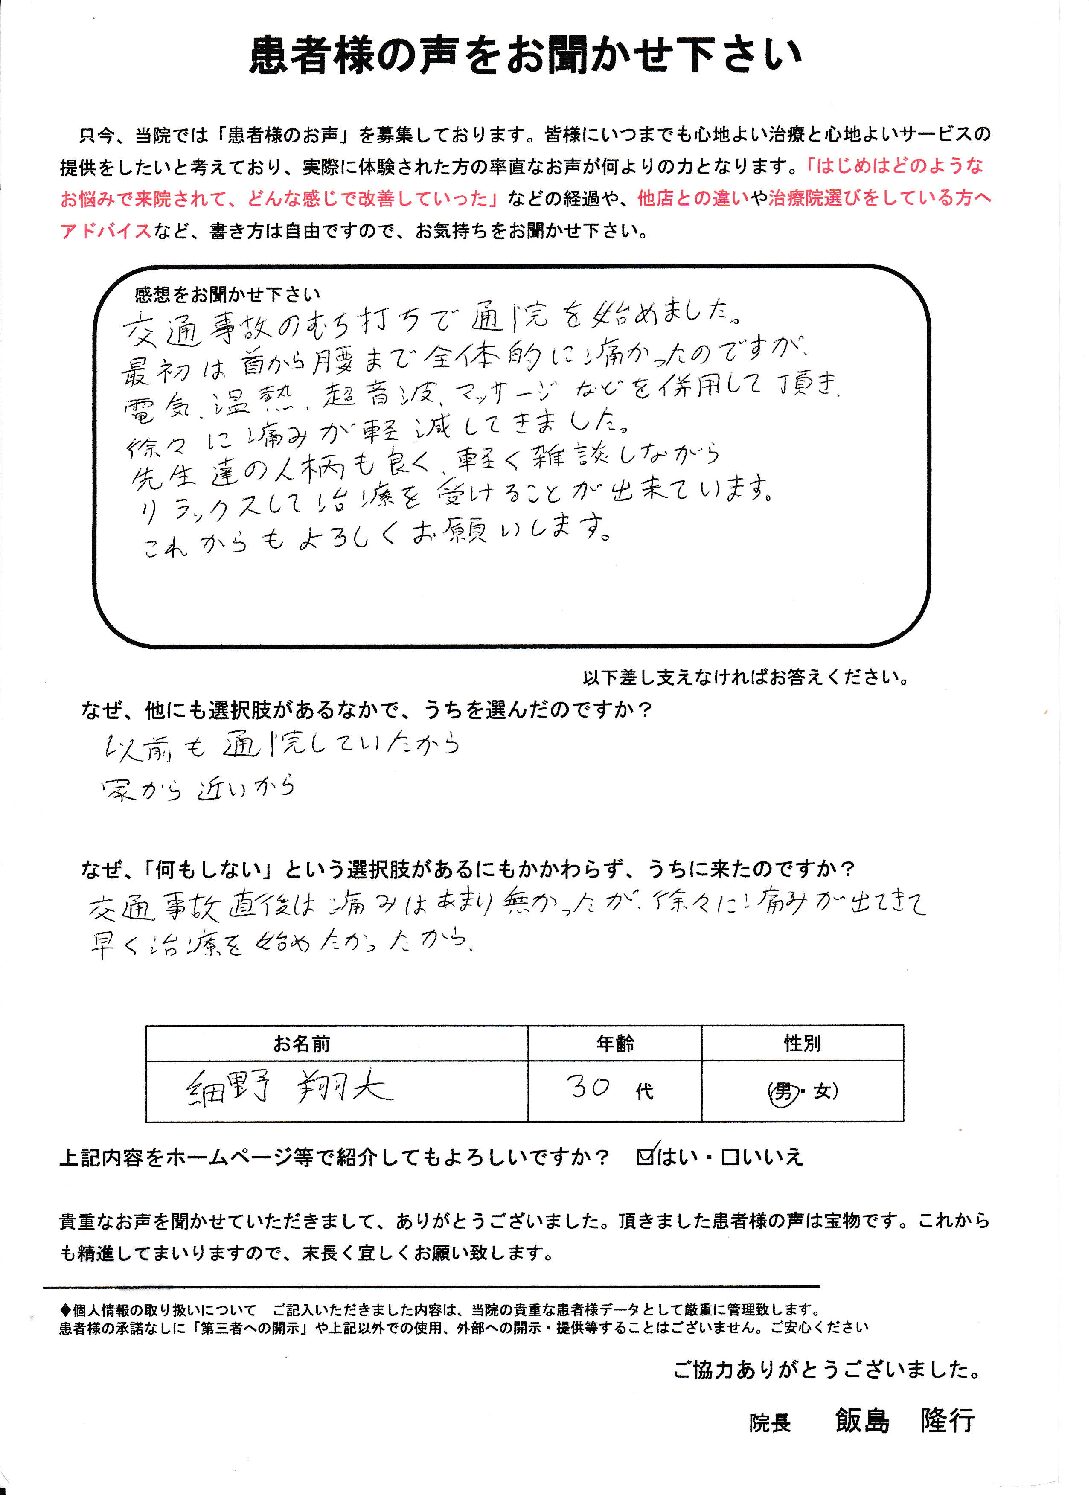 患者様の声をお聞かせ下さい
只今、当院では「患者様のお声」を募集しております。皆様にいつまでも心地よい治療と心地よいサービスの
提供をしたいと考えており、実際に体験された方の率直なお声が何よりの力となります。「はじめはどのような
お悩みで来院されて、どんな感じで改善していった」などの経過や、他店との違いや治療院選びをしている方へ
アドバイスなど、書き方は自由ですので、お気持ちをお聞かせ下さい。
感想をお聞かせ下さい
交通事故のむち打ちで通院を始めました。
最初は首から腰まで全体的に痛かったのですが、
電気、温熱、超音波、マッサージなどを併用して頂き、
徐々に痛みが軽減してきました。
先生達の人柄も良く、軽く雑談しながら
リラックスして治療を受けることが出来ています。
これからもよろしくお願いします。
以下差し支えなければお答えください。
なぜ、他にも選択肢があるなかで、うちを選んだのですか？
以前も通院していたから
家から近いから
なぜ、「何もしない」という選択肢があるにもかかわらず、うちに来たのですか？
交通事故直後は痛みはあまり無かったが、徐々に痛みが出てきて
早く治療を始めたかったから、
お名前 年齢 性別
細野 翔大 30 代 (男・女)
上記内容をホームページ等で紹介してもよろしいですか？ ☑はい・口いいえ
貴重なお声を聞かせていただきまして、ありがとうございました。頂きました患者様の声は宝物です。これから
も精進してまいりますので、末長く宜しくお願い致します。
◆個人情報の取り扱いについて ご記入いただきました内容は、当院の貴重な患者様データとして厳重に管理致します。
患者様の承諾なしに「第三者への開示」や上記以外での使用、外部への開示・提供等することはございません。ご安心ください
ご協力ありがとうございました。
院長 飯島 隆行